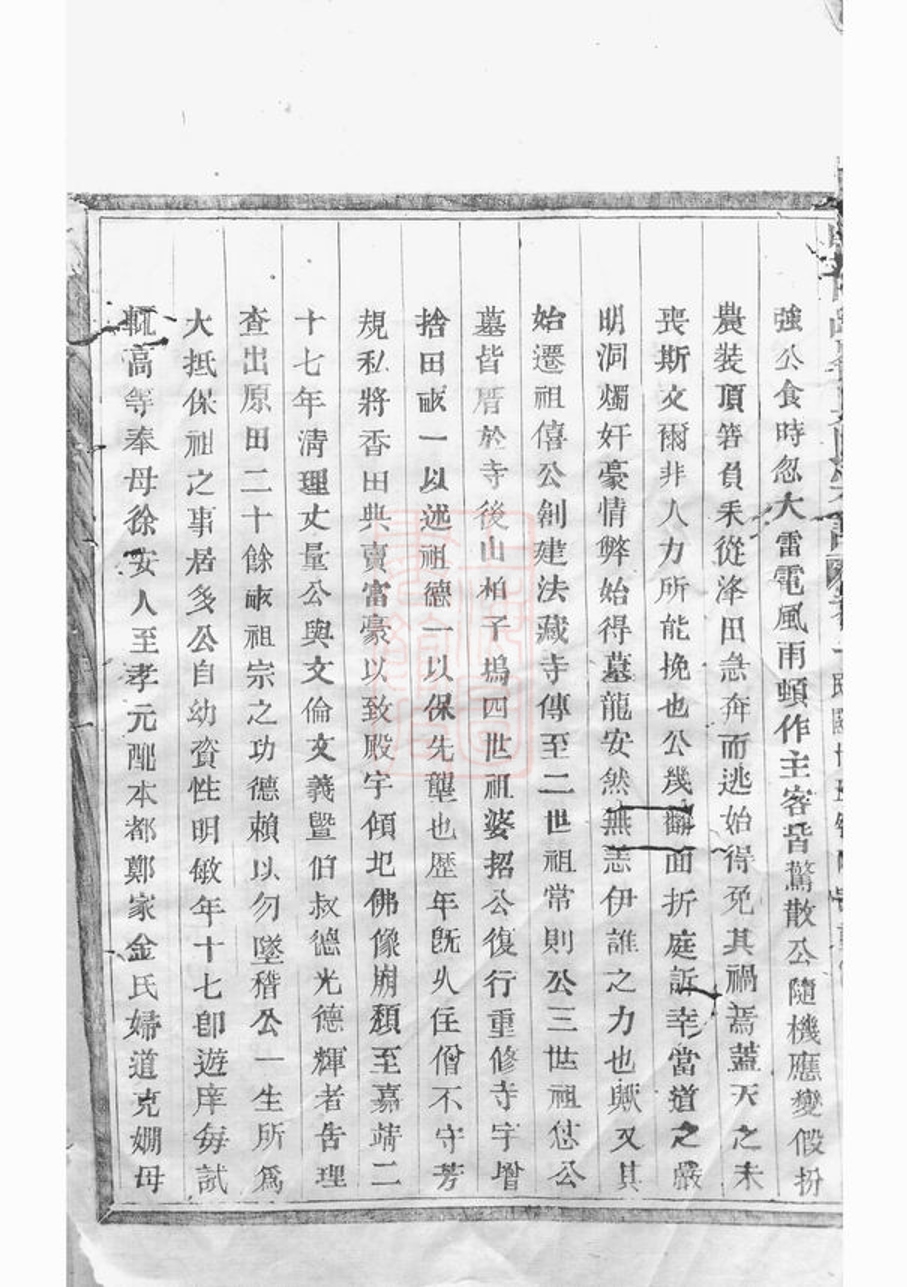 強公食時忽大雷電風雨頓作主客皆驚散公隨機應變假扮
農裝頂笠負耒從泽田急奔而逃始得免其禍焉蓋天之未
喪斯文爾非人力所能挽也公幾翻面折庭訴幸當道之嚴
明洞燭奸豪情弊始得墓龍安然無恙伊誰之力也歟又其
始遷祖僖公創建法藏寺傳至二世祖常則公三世祖公
墓皆厝於寺後山柏子塢四世祖婆招公復行重修寺宇增
捨田畝一以述祖德一以保先壠也歷年旣久住僧不守芳
規私將香田典賣富豪以致殿宇傾圯佛像崩頹至嘉靖二
十七年淸理丈量公與文倫文義暨伯叔德光德輝者告理
查出原田二十餘畝祖宗之功德賴以勿墜稽公一生所爲
大抵保祖之事居多公自幼資性明敏年十七卽遊庠每試
輒高等奉母徐安人至孝元配本都鄭家金氏婦道克嫻母